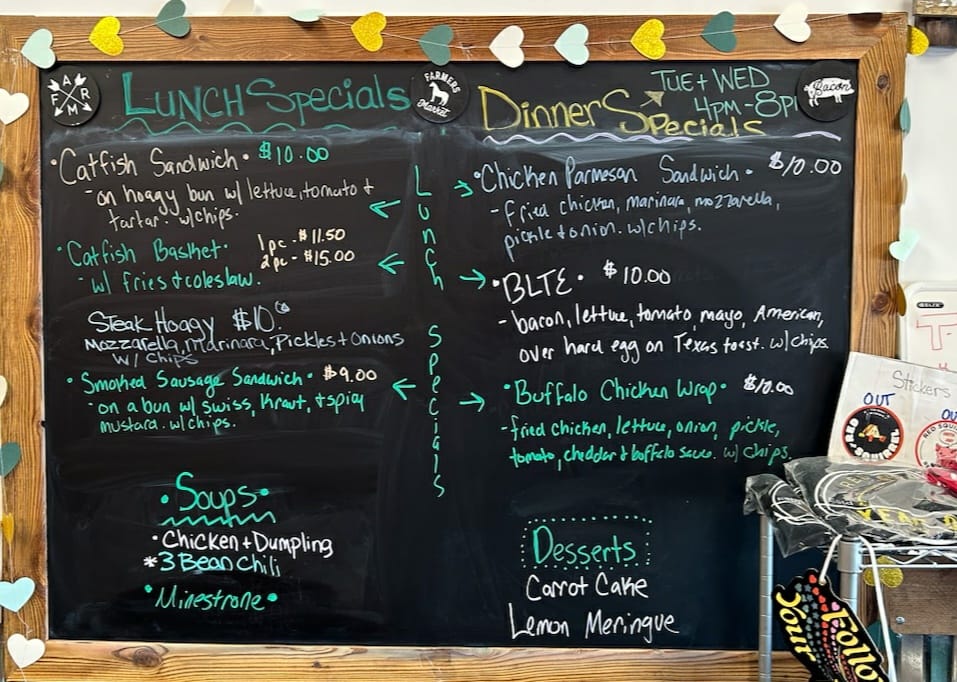 FARM
LUNCH Specials
FARMERS
Market
• Catfish Sandwich • $10.00
- on hoagy bun w/ lettuce, tomato +
tartar. w/chips.
• Catfish Basket •
1 pc - $11.50
2 pc - $15.00
- w/ fries + coleslaw.
Steak Hoagy $10.00
Mozzarella, Marinara, Pickles + Onions
w/ chips
• Smoked Sausage Sandwich • $9.00
- on a bun w/ swiss, kraut, + spicy
mustard. w/chips.
• Soups •
• Chicken + Dumpling
* 3 Bean Chili
• Minestrone •
Lunch Specials
Dinner Specials
TUE + WED
4PM - 8P
Bacon
• Chicken Parmesan Sandwich • $10.00
- fried chicken, marinara, mozzarella,
pickle + onion. w/chips.
• BLTE • $10.00
- bacon, lettuce, tomato, mayo, American,
over hard egg on Texas toast. w/chips.
• Buffalo Chicken Wrap • $10.00
- fried chicken, lettuce, onion, pickle,
tomato, cheddar + buffalo sauce. w/ chips.
Desserts
Carrot Cake
Lemon Meringue
T-
Stickers
OUT
OU
RED SQUI
Follo
You